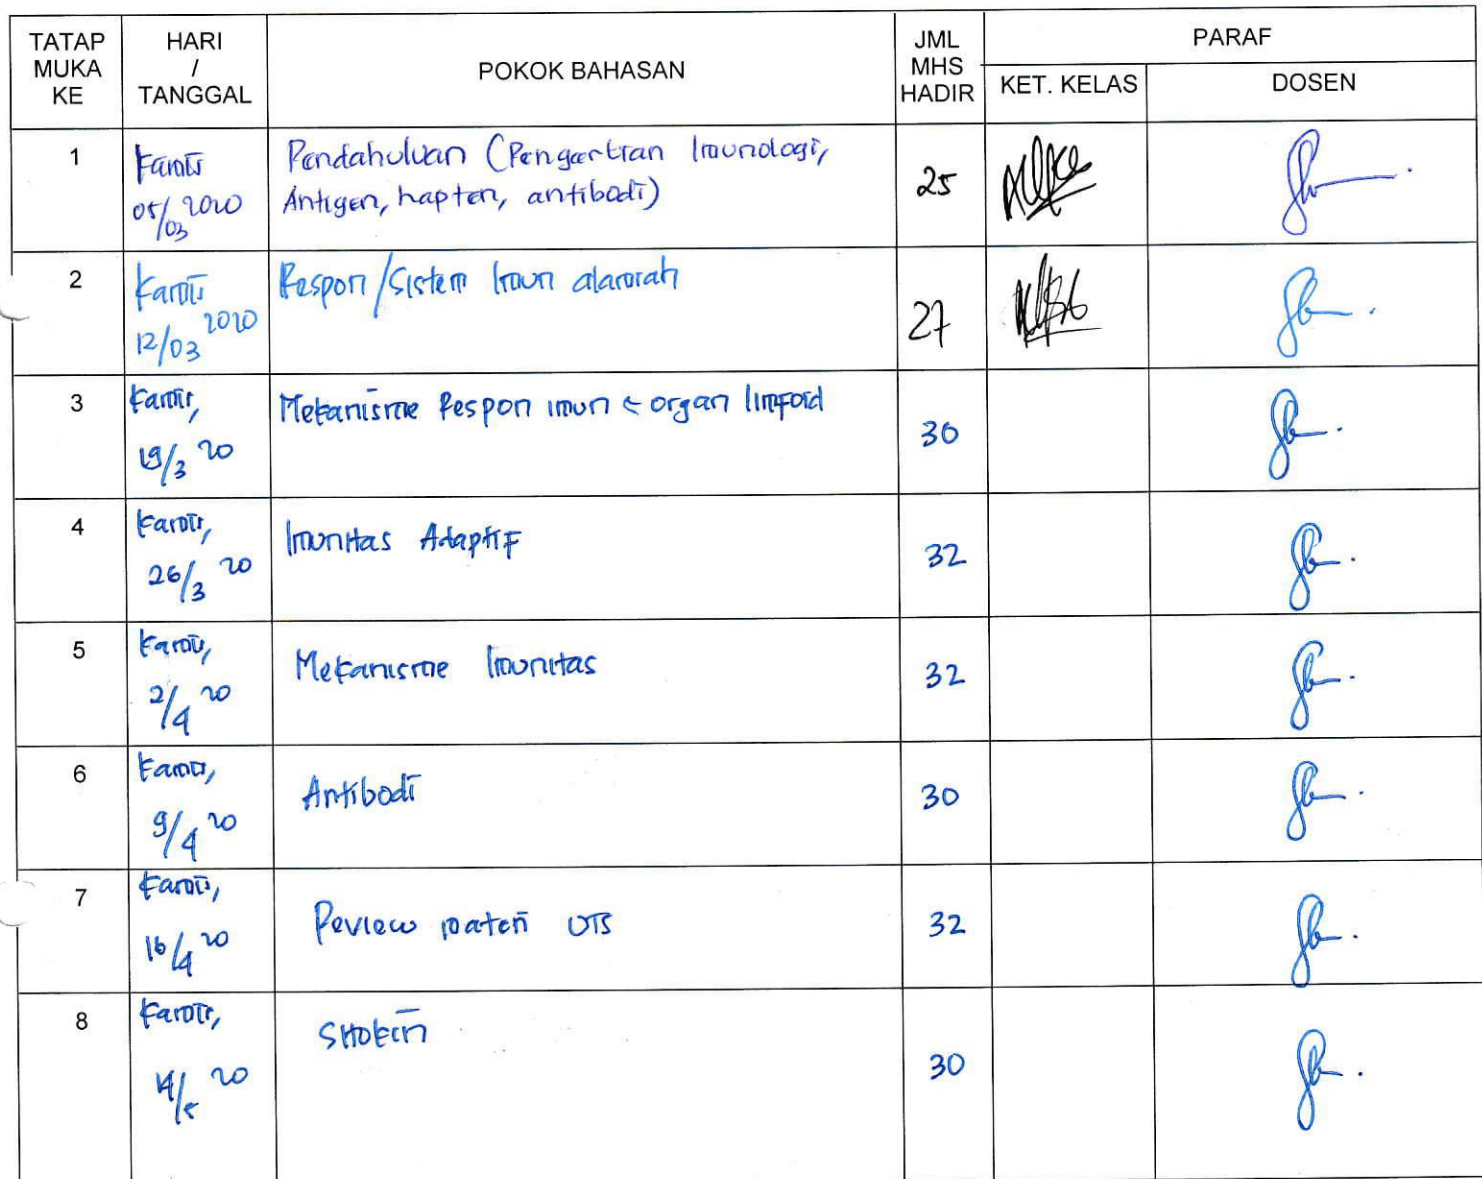 TATAP MUKA KE
HARI / TANGGAL
POKOK BAHASAN
JML MHS HADIR
PARAF
KET. KELAS
DOSEN
1
Kamis
05/03 2020
Pendahuluan (Pengertian Imunologi,
Antigen, hapten, antibodi)
25
2
Kamis
12/03 2020
Respon/Sistem Imun alamiah
27
3
Kamis,
19/3 20
Mekanisme Respon imun & organ limfoid
30
4
Kamis,
26/3 20
Imunitas Adaptif
32
5
Kamis,
2/4 20
Mekanisme Imunitas
32
6
Kamis,
9/4 20
Antibodi
30
7
Kamis,
16/4 20
Review materi UTS
32
8
Kamis,
14/5 20
Sitokin
30